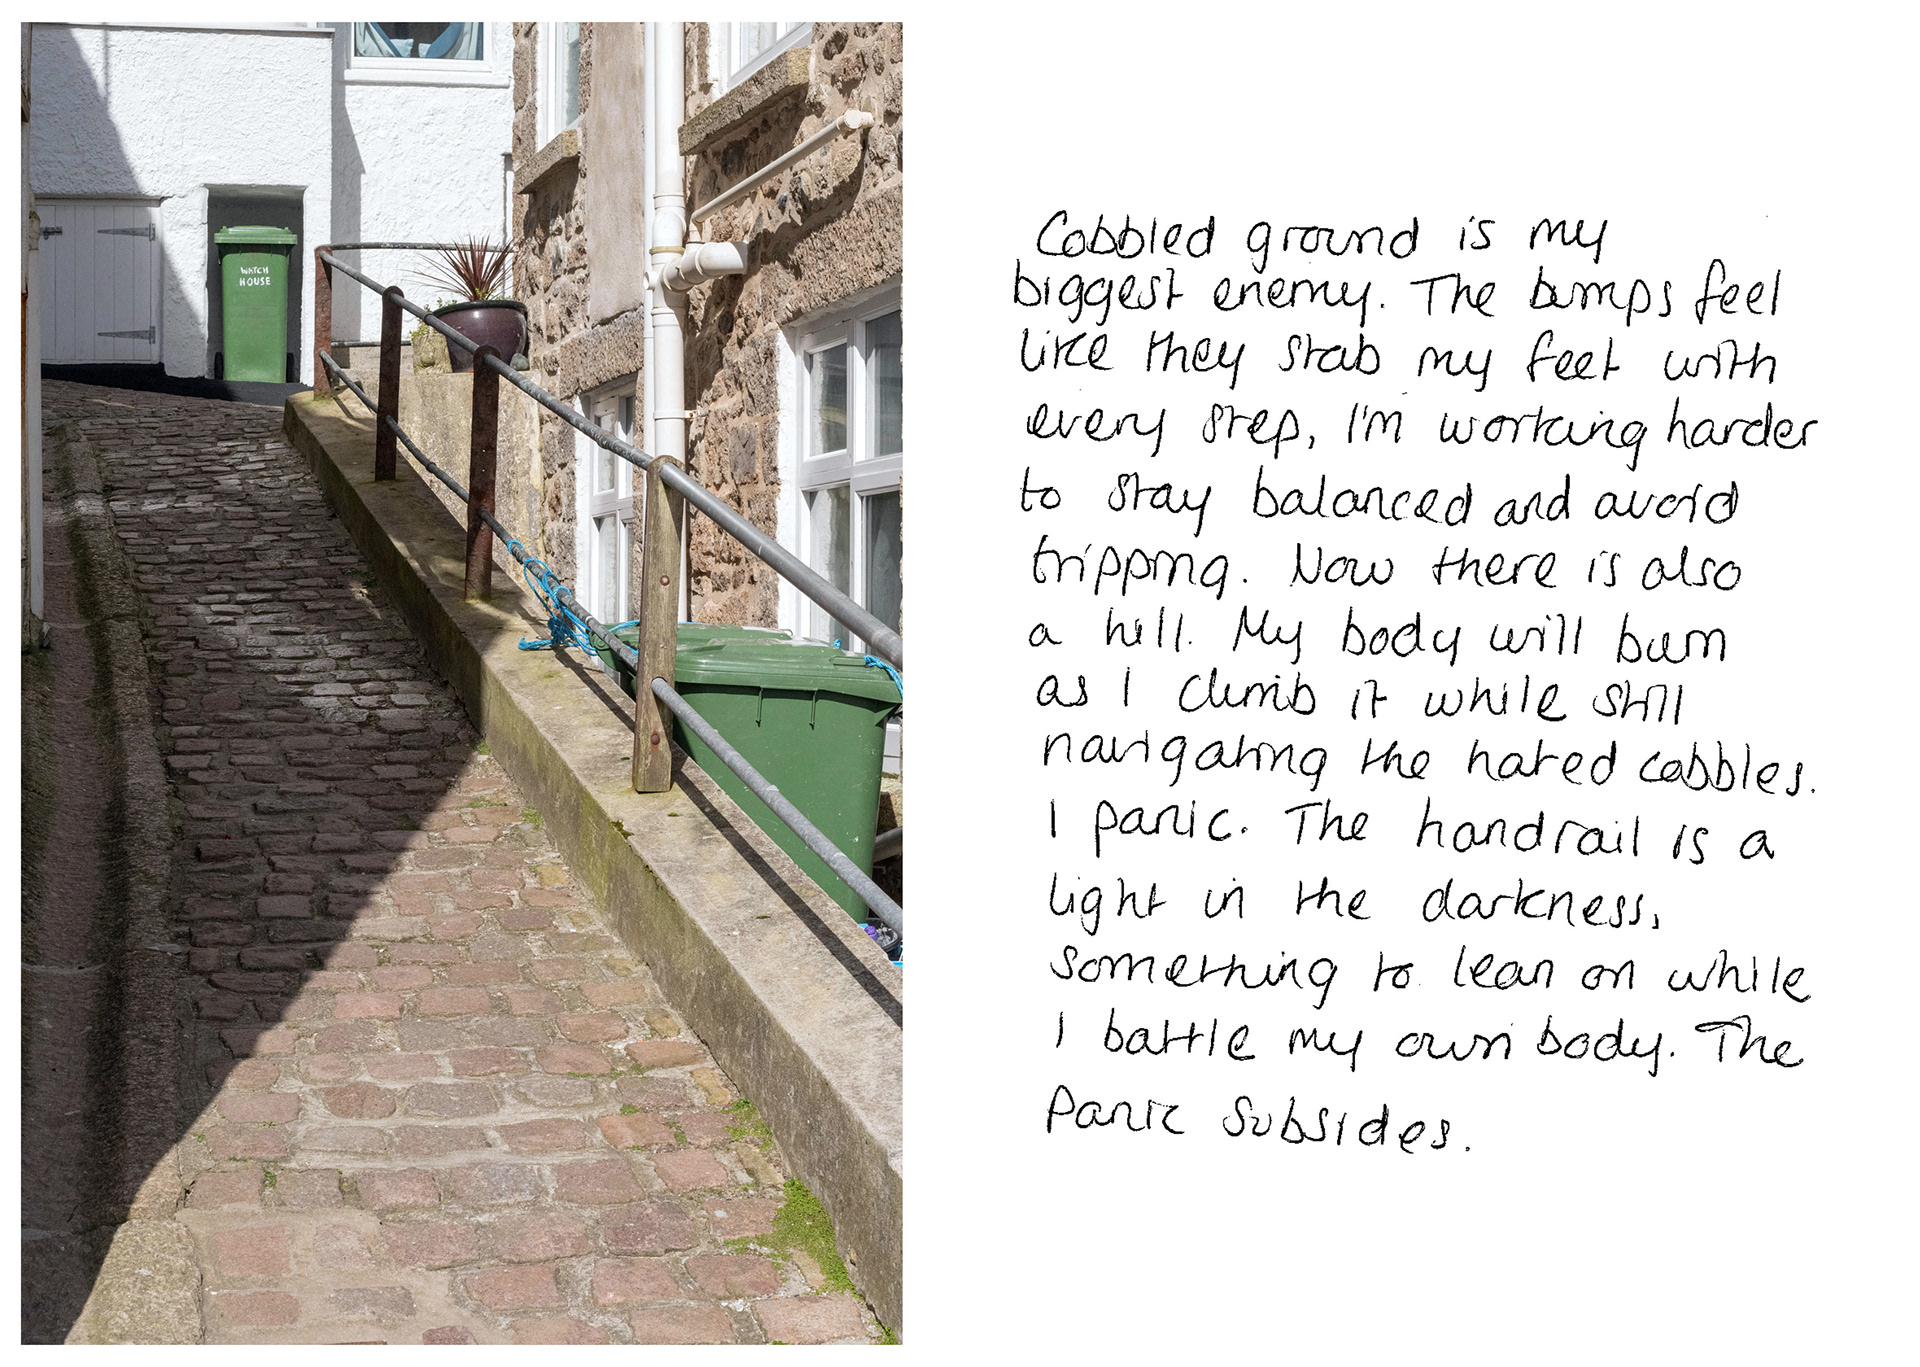 WATCH
HOUSE
Cobbled ground is my
biggest enemy. The bumps feel
like they stab my feet with
every step, I'm working harder
to stay balanced and avoid
tripping. Now there is also
a hill. My body will burn
as I climb it while still
navigating the hated cobbles.
I panic. The handrail is a
light in the darkness,
something to lean on while
I battle my own body. The
Panic Subsides.